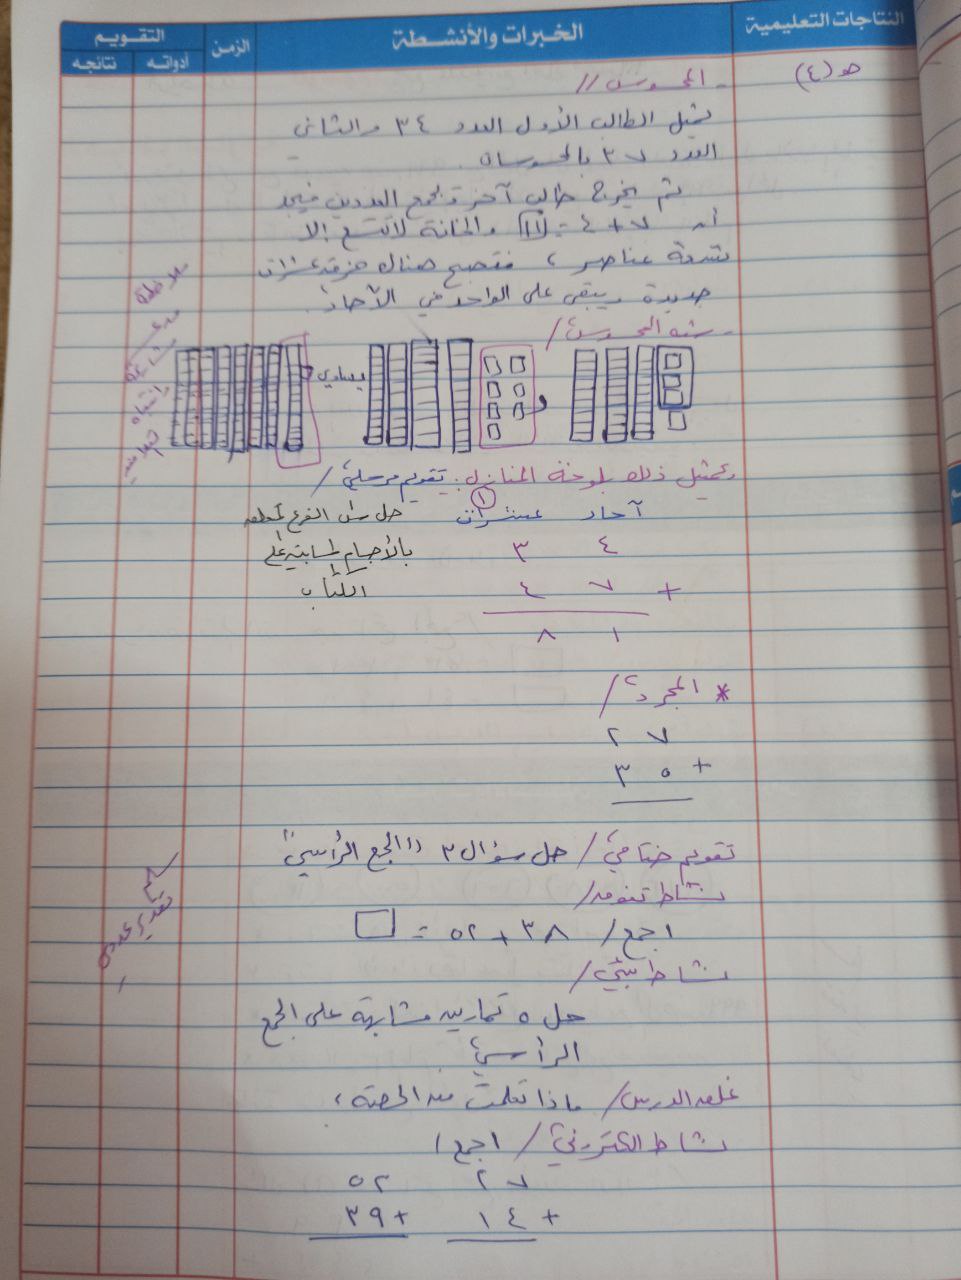 النتاجات التعليمية
الخبرات والأنشطة
الزمن
التقويم
أدواته
نتائجه
هـ (٤)
- المحسوس //
تمثيل الطالب الأول العدد ٣٤ والثاني
العدد ٤٧ بالمحسوسات
ثم يخرج طالب آخر يجمع العددين فيجد
أن ٧ + ٤ = ١١ والخانة لا تتسع إلا
تسعة عناصر ، فتصبح هناك حزمة عشرات
جديدة ويبقى على الواحد في الآحاد .
- شبه المحسوس /
يساوي
وتمثيل ذلك بلوحة المنازل : تقويم مرحلي /
آحاد عشرات
١
٤ ٣
+ ٧ ٤
١ ٨
حل
بالأجسام
الكتاب
ملاحظة
* المجرد /
٢٧
+ ٣٥
تقويم ختامي / حل سؤال ٣ "الجمع الرأسي"
نشاط
اجمع / ٣٨ + ٥٢ = □
نشاط بيتي /
حل ٥ تمارين مشابهة على الجمع
الرأسي
غلق الدرس / ماذا تعلمت من الحصة ،
نشاط الكتروني / اجمع /
٢٧ ٥٢
+ ١٤ + ٣٩